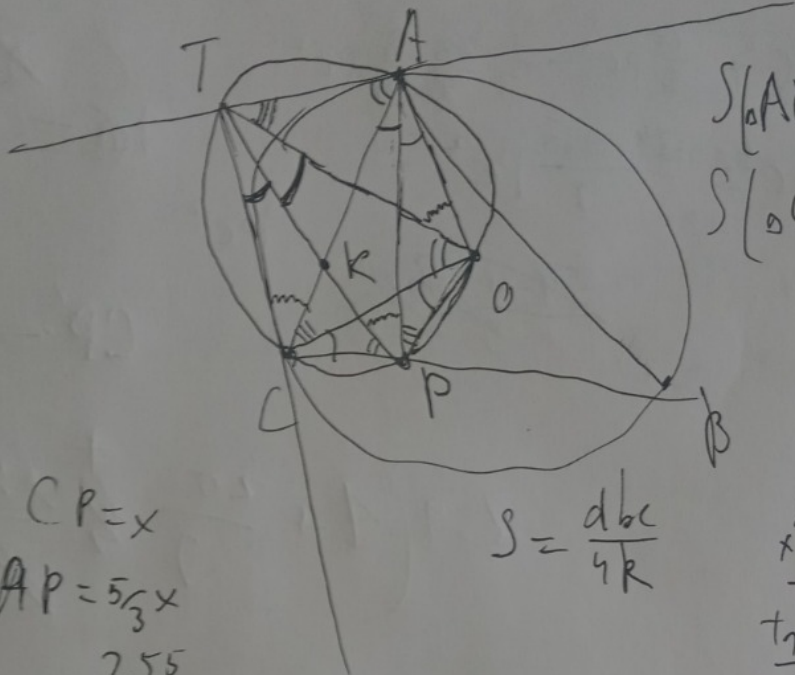 A
T
S(△A
S(△
K
O
C
P
B
CP=x
AP=5/3x
255
S=abc/4R
x
+